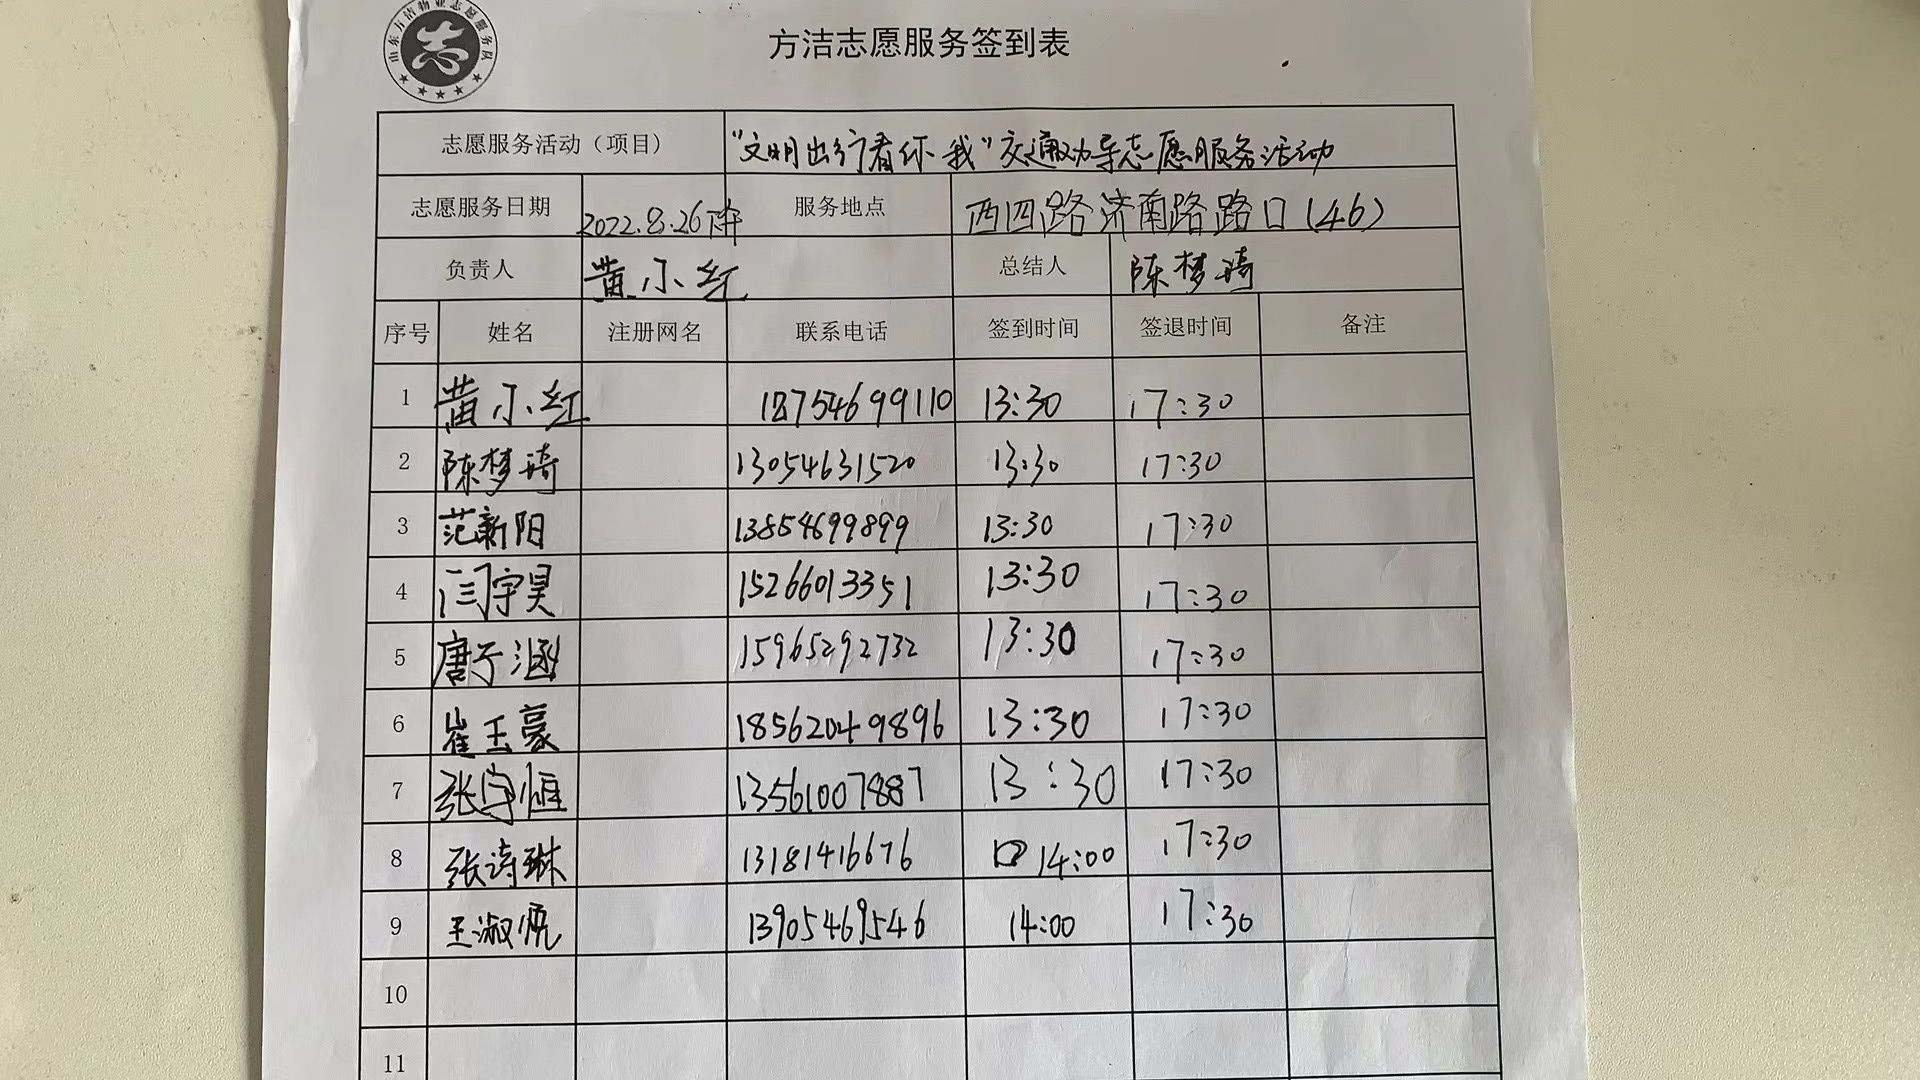 山东方洁物业志愿服务队
志
方洁志愿服务签到表
志愿服务活动（项目） “文明出行看你我”交通劝导志愿服务活动
志愿服务日期 2022.8.26下午 服务地点 西四路济南路路口(46)
负责人 黄小红 总结人 陈梦琦
序号 姓名 注册网名 联系电话 签到时间 签退时间 备注
1 黄小红 18754699110 13:30 17:30
2 陈梦琦 13054631520 13:30 17:30
3 范新阳 13854699899 13:30 17:30
4 闫宇昊 15266013351 13:30 17:30
5 唐子涵 15965292732 13:30 17:30
6 崔玉豪 18562049896 13:30 17:30
7 张守恒 13561007887 13:30 17:30
8 张诗琳 13181416676 14:00 17:30
9 王淑 13905469546 14:00 17:30
10
11